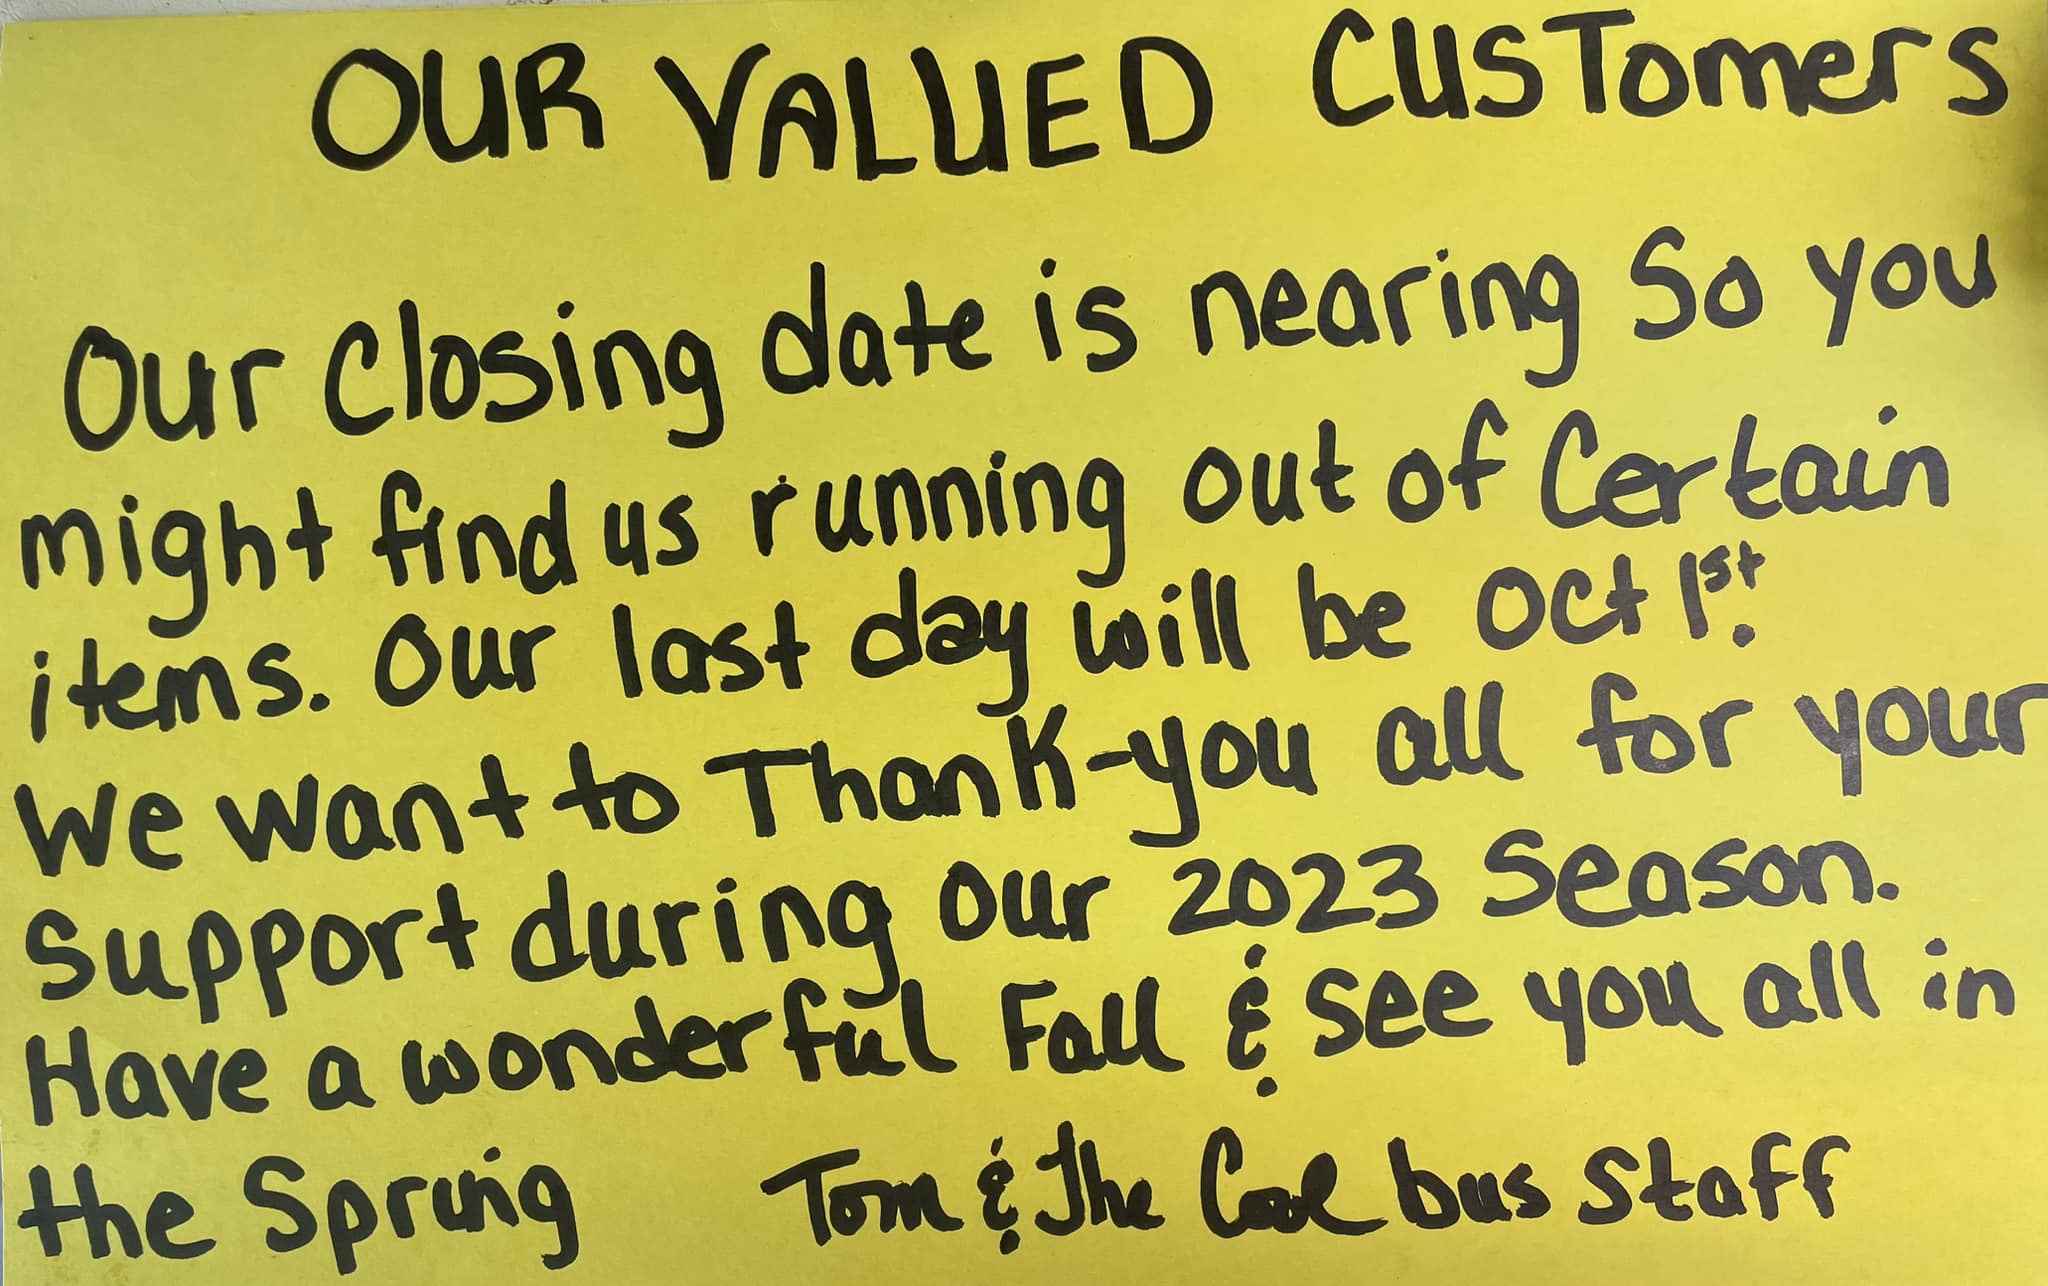 OUR VALUED CUSTomers
Our Closing date is nearing So you
might find us running out of Certain
items. Our last day will be Oct 1st.
We want to Thank-you all for your
Support during our 2023 Season.
Have a wonderful Fall & See you all in
the Spring Tom & The Cool bus Staff